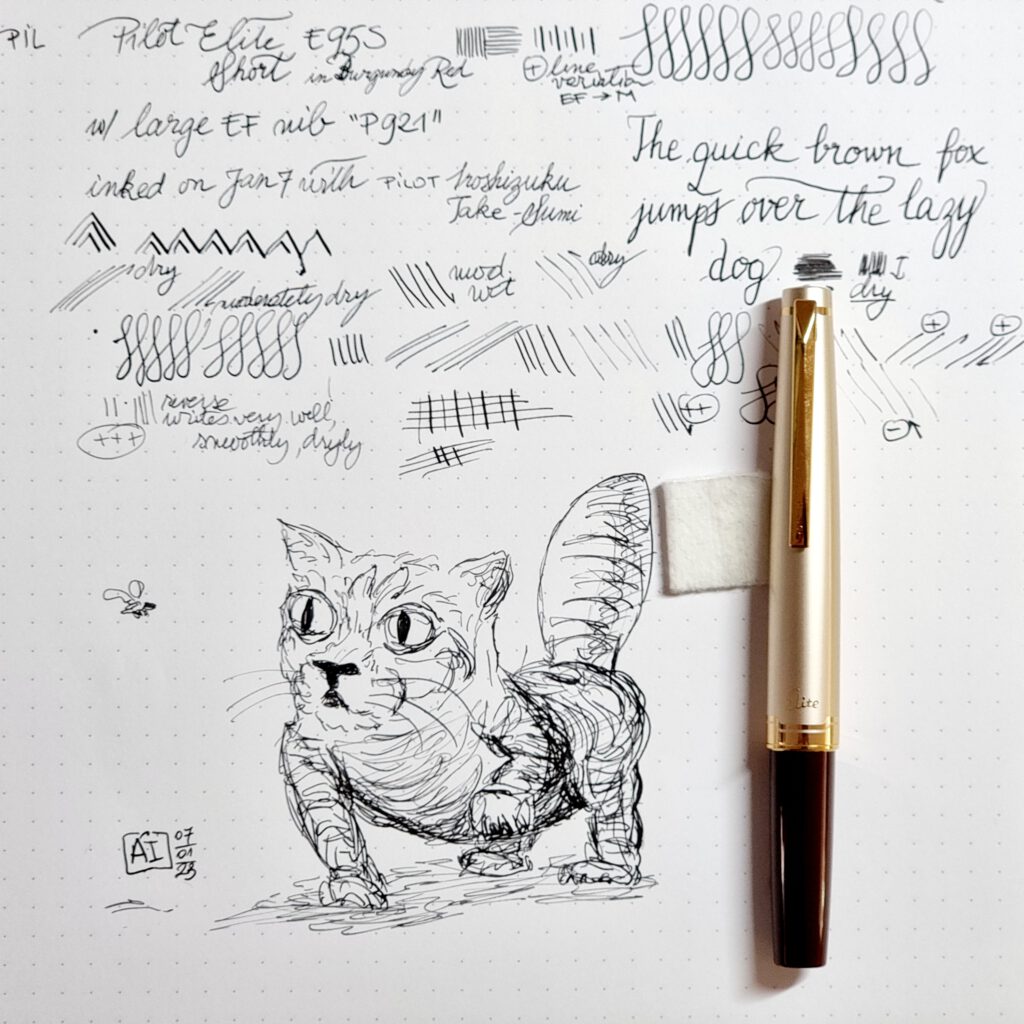 PIL
Pilot Elite E95S
Short in Burgundy Red
+ line
variation
EF → M
w/ large EF nib "P921"
inked on Jan 7 with PILOT Iroshizuku
Take-Sumi
The quick brown fox
jumps over the lazy
dog
dry
moderately dry
mod.
wet
dry
+
+
reverse
writes very well,
smoothly, dryly
+++
++
-
Elite
AI
07
01
23